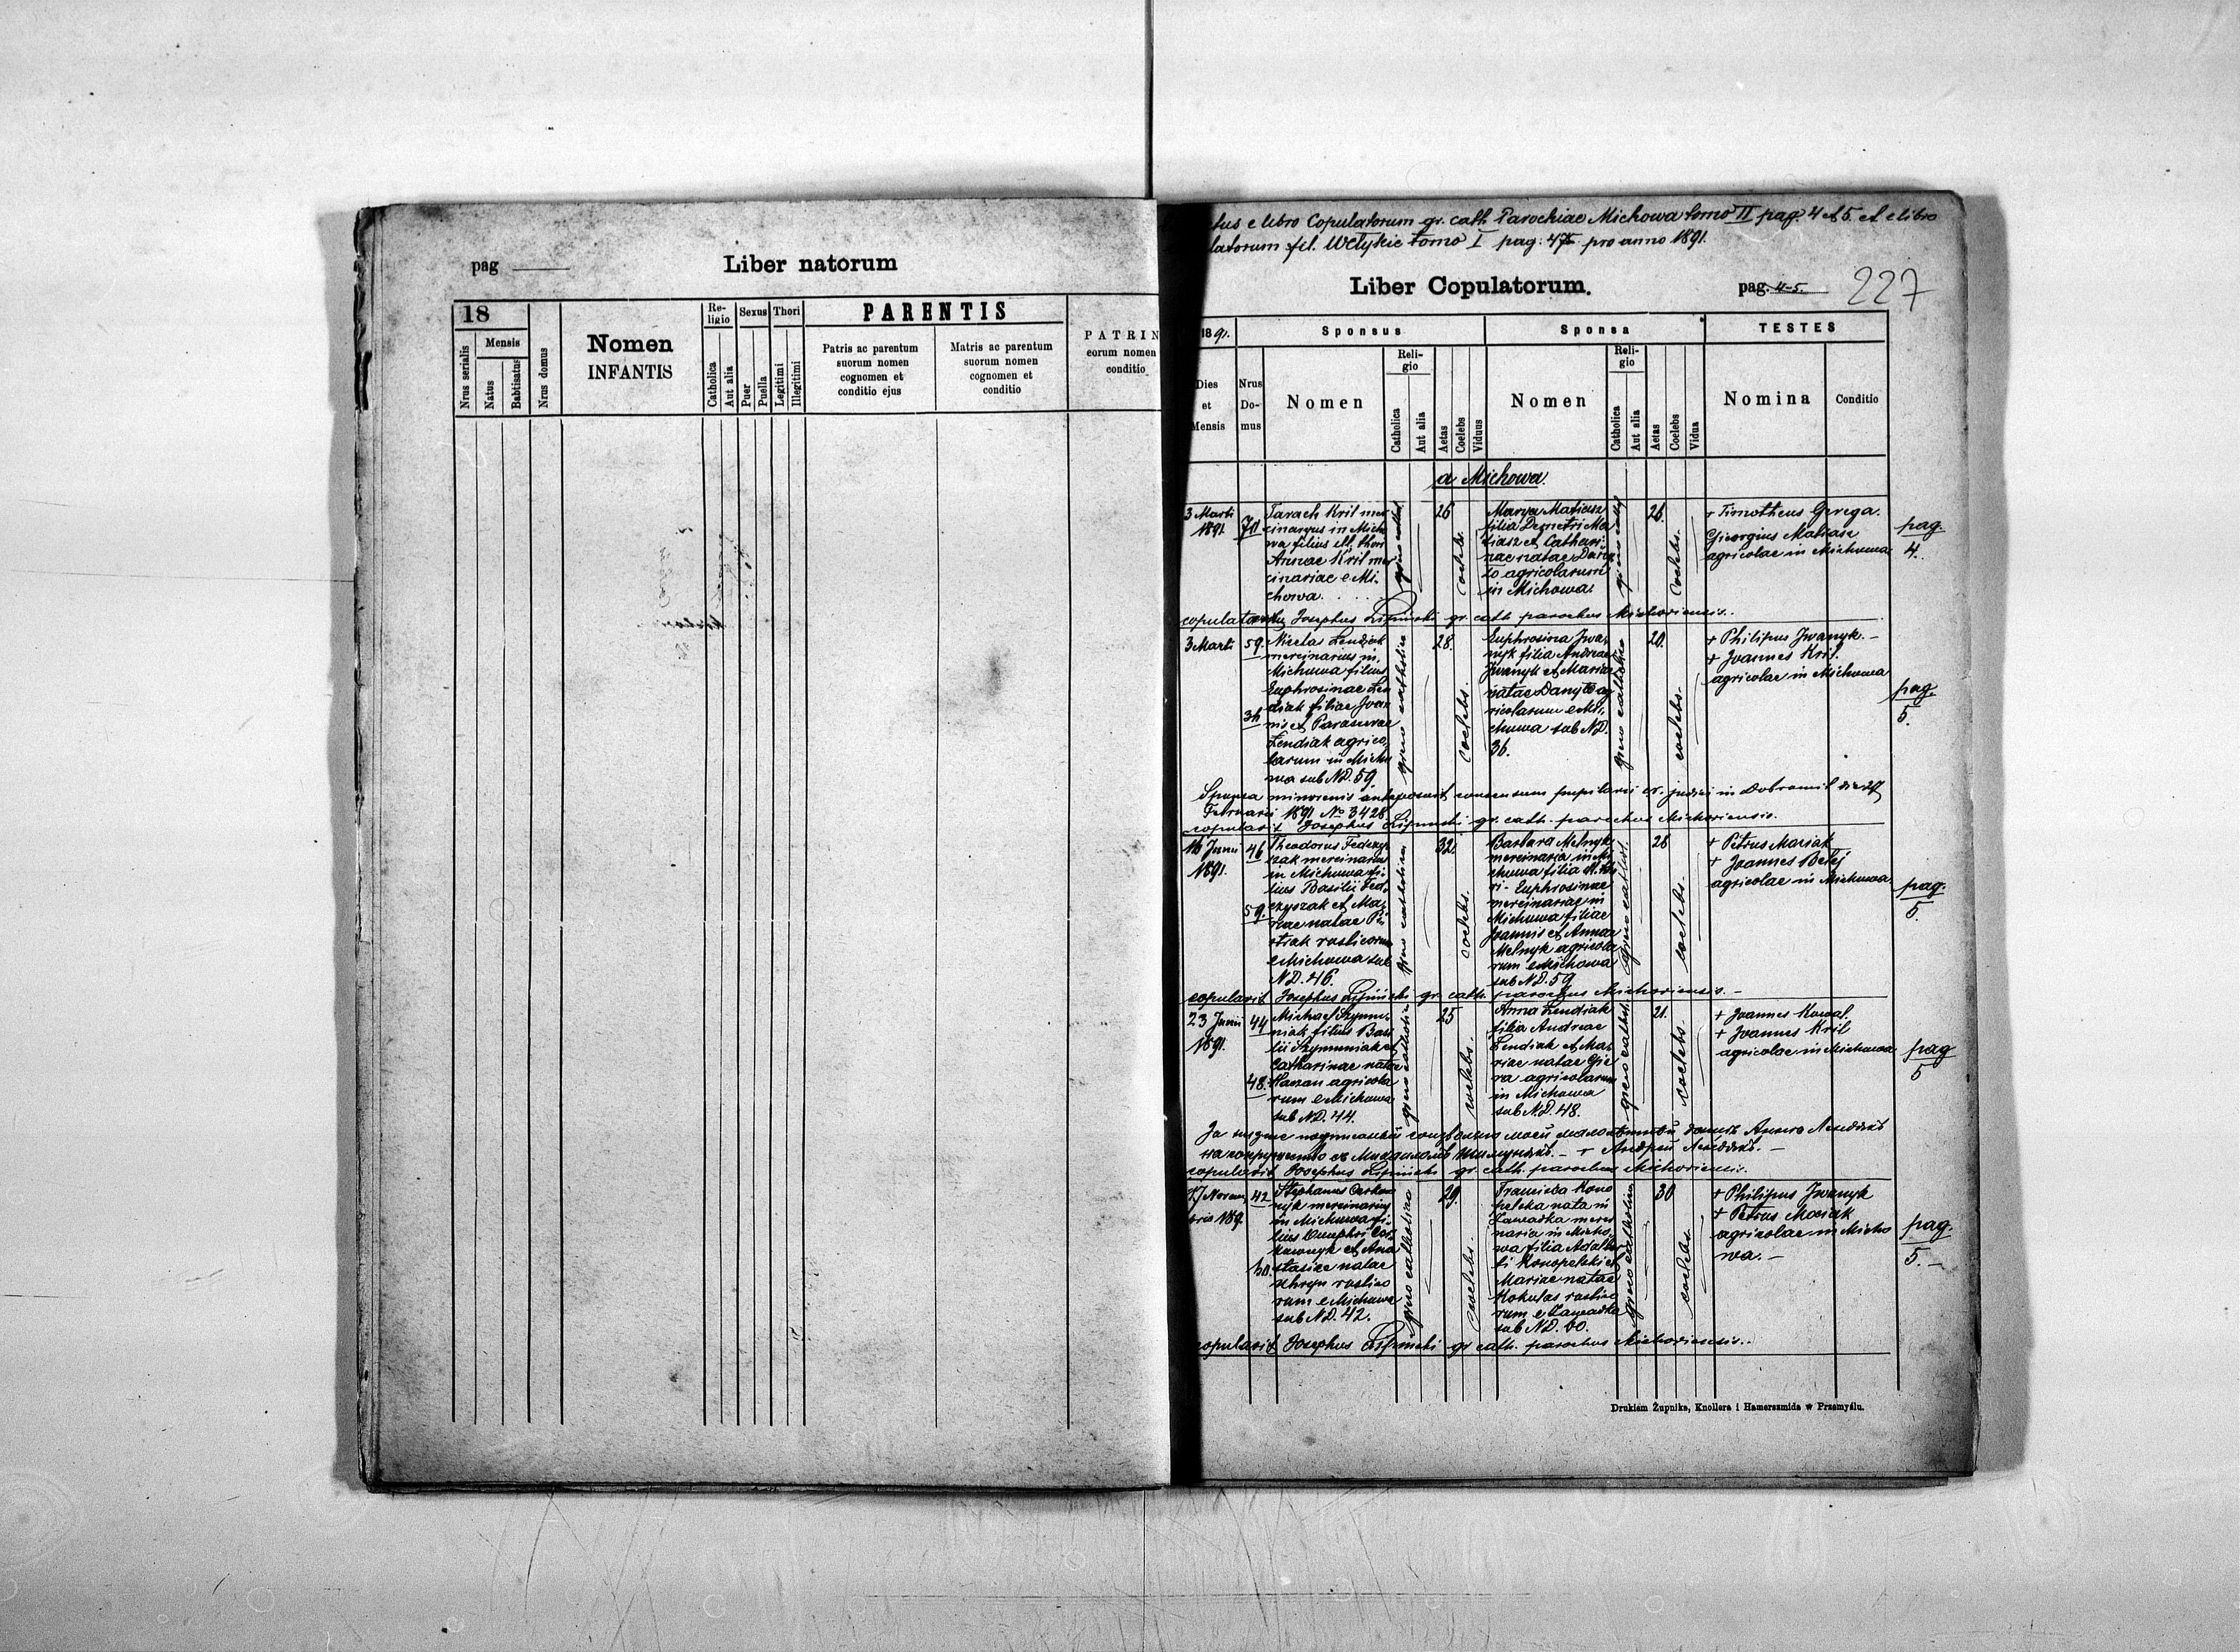 pag
Liber natorum
18
Nrus serialis
Mensis
Natus
Babtisatus
Nrus domus
Nomen
INFANTIS
Re-
ligio
Catholica
Aut alia
Sexus
Puer
Puella
Thori
Legitimi
Illegitimi
PARENTIS
Patris ac parentum
suorum nomen
cognomen et
conditio ejus
Matris ac parentum
suorum nomen
cognomen et
conditio
PATRIN
eorum nomen
conditio
tus e libro Copulatorum gr. cath. Parochiae Michowa tomo II pag. 4 et 5. et e libro
latorum fil. Wełykie tomo I pag. 47 pro anno 1891.
Liber Copulatorum.
pag. 4-5.
227
1891.
Sponsus
Sponsa
TESTES
Dies
et
Mensis
Nrus
Do-
mus
Nomen
Reli-
gio
Catholica
Aut alia
Aetas
Coelebs
Viduus
Nomen
Reli-
gio
Catholica
Aut alia
Aetas
Coelebs
Vidua
Nomina
Conditio
a Michowa.
3 Marti
1891.
70
Tarach Kril mer
cinarius in Micho
wa filius ill. thori
Annae Kril mer
cinariae e Mi-
chowa.
26
coelebs
Marya Matiasz
filia Demetri Ma
tiasz et Cathari-
nae natae
agricolarum
in Michowa.
26.
coelebs.
+ Timotheus Gerega.
Georgius Matiasz
agricolae in Michowa
pag.
4.
Josephus Lipinski gr. cath. parochus Michoviensis.
3 Marti
59.
36
Nicola Lendiak
mercinarius in
Michowa filius
Euphrosinae Len
diak filiae Joan
nis et Parascevae
Lendiak agrico
larum in Micho
wa sub ND. 59
greco catholica
28.
coelebs.
Euphrosina Iwa
nyk filia Andreae
Iwanyk et Mariae
natae Danyło ag
ricolarum e Mi-
chowa sub ND.
36.
greco catholica
20.
coelebs.
+ Philipus Iwanyk. -
+ Joannes Kril.
agricolae in Michowa
pag.
5.
Sponsa minorenis consensum in Dobromil
Februarii 1891 No 3428
copularit Josephus Lipinski gr. cath. parochus Michoviensis.
16 Junii
1891.
46
59.
Theodorus Fedczy
szak mercinarius
in Michowa fi-
lius Basilii Fed
czyszak et Ma-
riae natae
rusticorum
e Michowa sub
ND. 46.
greco catholica
32.
coelebs.
Barbara Melnyk
mercinaria in Mi
chowa filia
Euphrosinae
mercinariae in
Michowa filiae
Joannis et Annae
Melnyk agricola
rum e Michowa
sub ND. 59
28
coelebs.
+ Petrus Maciak
+ Joannes Bełej
agricolae in Michowa.
pag.
5.
copularit Josephus Lipinski gr. cath. parochus Michoviensis. -
23 Junii
1891.
44
48.
Michael Szymu-
niak filius Basi
lii Szymuniak et
Catharinae natae
Hanan agricola
rum e Michowa
sub ND. 44.
greco catholica
25
coelebs.
Anna Lendiak
filia Andreae
Lendiak et Ma-
riae natae Gie
ra agricolarum
in Michowa
sub ND. 48.
21.
coelebs.
+ Joannes Kowal.
+ Joannes Kril
agricolae in Michowa
pag
5
copularit Josephus Lipinski gr. cath. parochus Michoviensis.
17 Novem
bris 189.
42
60.
Stephanus
mercinarius
in Michowa fi-
lius Onuphri
et Ana
stasiae natae
Uhryn rustico
rum e Michowa
sub ND. 42.
greco catholica
29.
coelebs.
Franciska Kono
pelska nata in
Zawadka merci
naria in Micho-
wa filia Adalber
ti Konopelski et
Mariae natae
Kokulas rustico
rum e Zawadka
sub ND. 60.
greco catholica
30
coelebs.
+ Philipus Iwanyk
+ Petrus Maciak
agricolae in Micho
wa. -
pag.
5. -
copularit Josephus Lipinski gr cath. parochus Michoviensis.
Drukiem Żupnika, Knollera i Hamerszmida w Przemyślu.